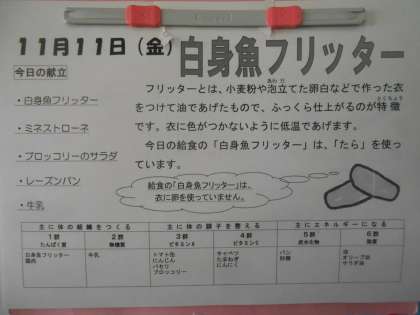 11月11日（金）
白身魚フリッター
今日の献立
・白身魚フリッター
・ミネストローネ
・ブロッコリーのサラダ
・レーズンパン
・牛乳
フリッターとは、小麦粉や泡立てた卵白などで作った衣
をつけて油であげたもので、ふっくら仕上がるのが特徴
です。衣に色がつかないように低温であげます。
今日の給食の「白身魚フリッター」は、「たら」を使っ
ています。
給食の「白身魚フリッター」は、
衣に卵を使っていません。
主に体の組織をつくる 主に体の調子を整える 主にエネルギーになる
1群 2群 3群 4群 5群 6群
たんぱく質 無機質 ビタミンA ビタミンC 炭水化物 脂質
白身魚フリッター 牛乳 トマト缶 キャベツ パン 油
鶏肉 にんじん たまねぎ 砂糖 オリーブ油
パセリ にんにく サラダ油
ブロッコリー